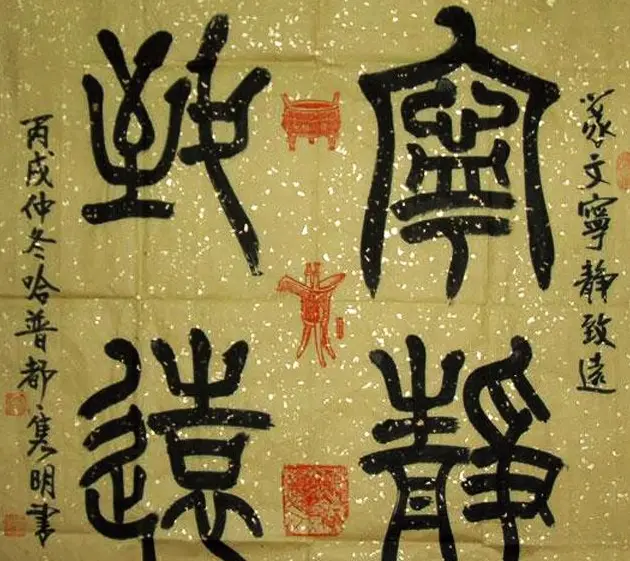 篆文寧静致遠
寧靜
致遠
丙戌仲冬哈普都隽明書